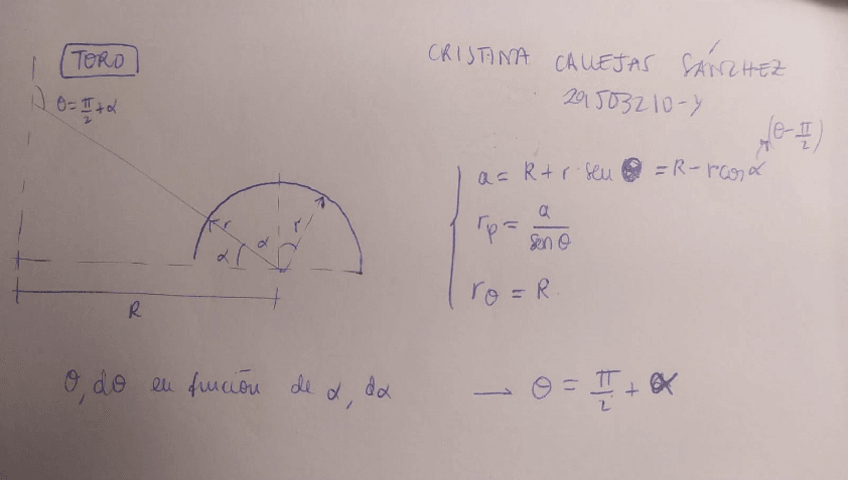 TORO
CRISTINA CALLEJAS SÁNCHEZ
29503210-Y
θ = π/2 + α
(θ - π/2)
a = R + r · sen = R - r cos α
r_p = a / sen θ
r_θ = R
r
r
α
α
R
θ, dθ en función de α, dα → θ = π/2 + α